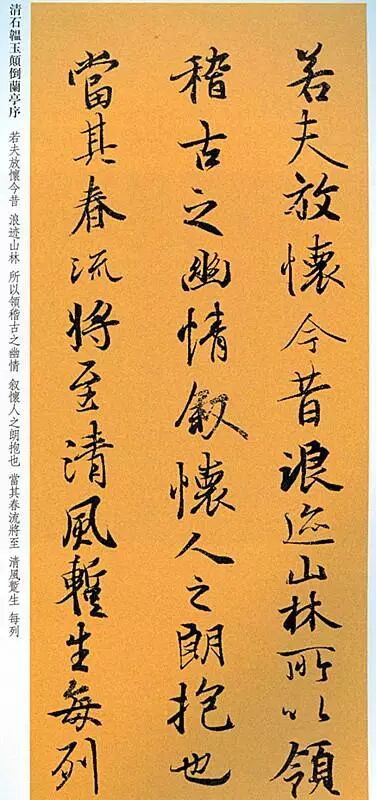 若夫放懷今昔浪迹山林所以領
稽古之幽情叙懷人之朗抱也
當其春流將至清風暫生每列
清石韞玉顛倒蘭亭序 若夫放懷今昔 浪迹山林 所以領稽古之幽情 叙懷人之朗抱也 當其春流將至 清風暫生 每列